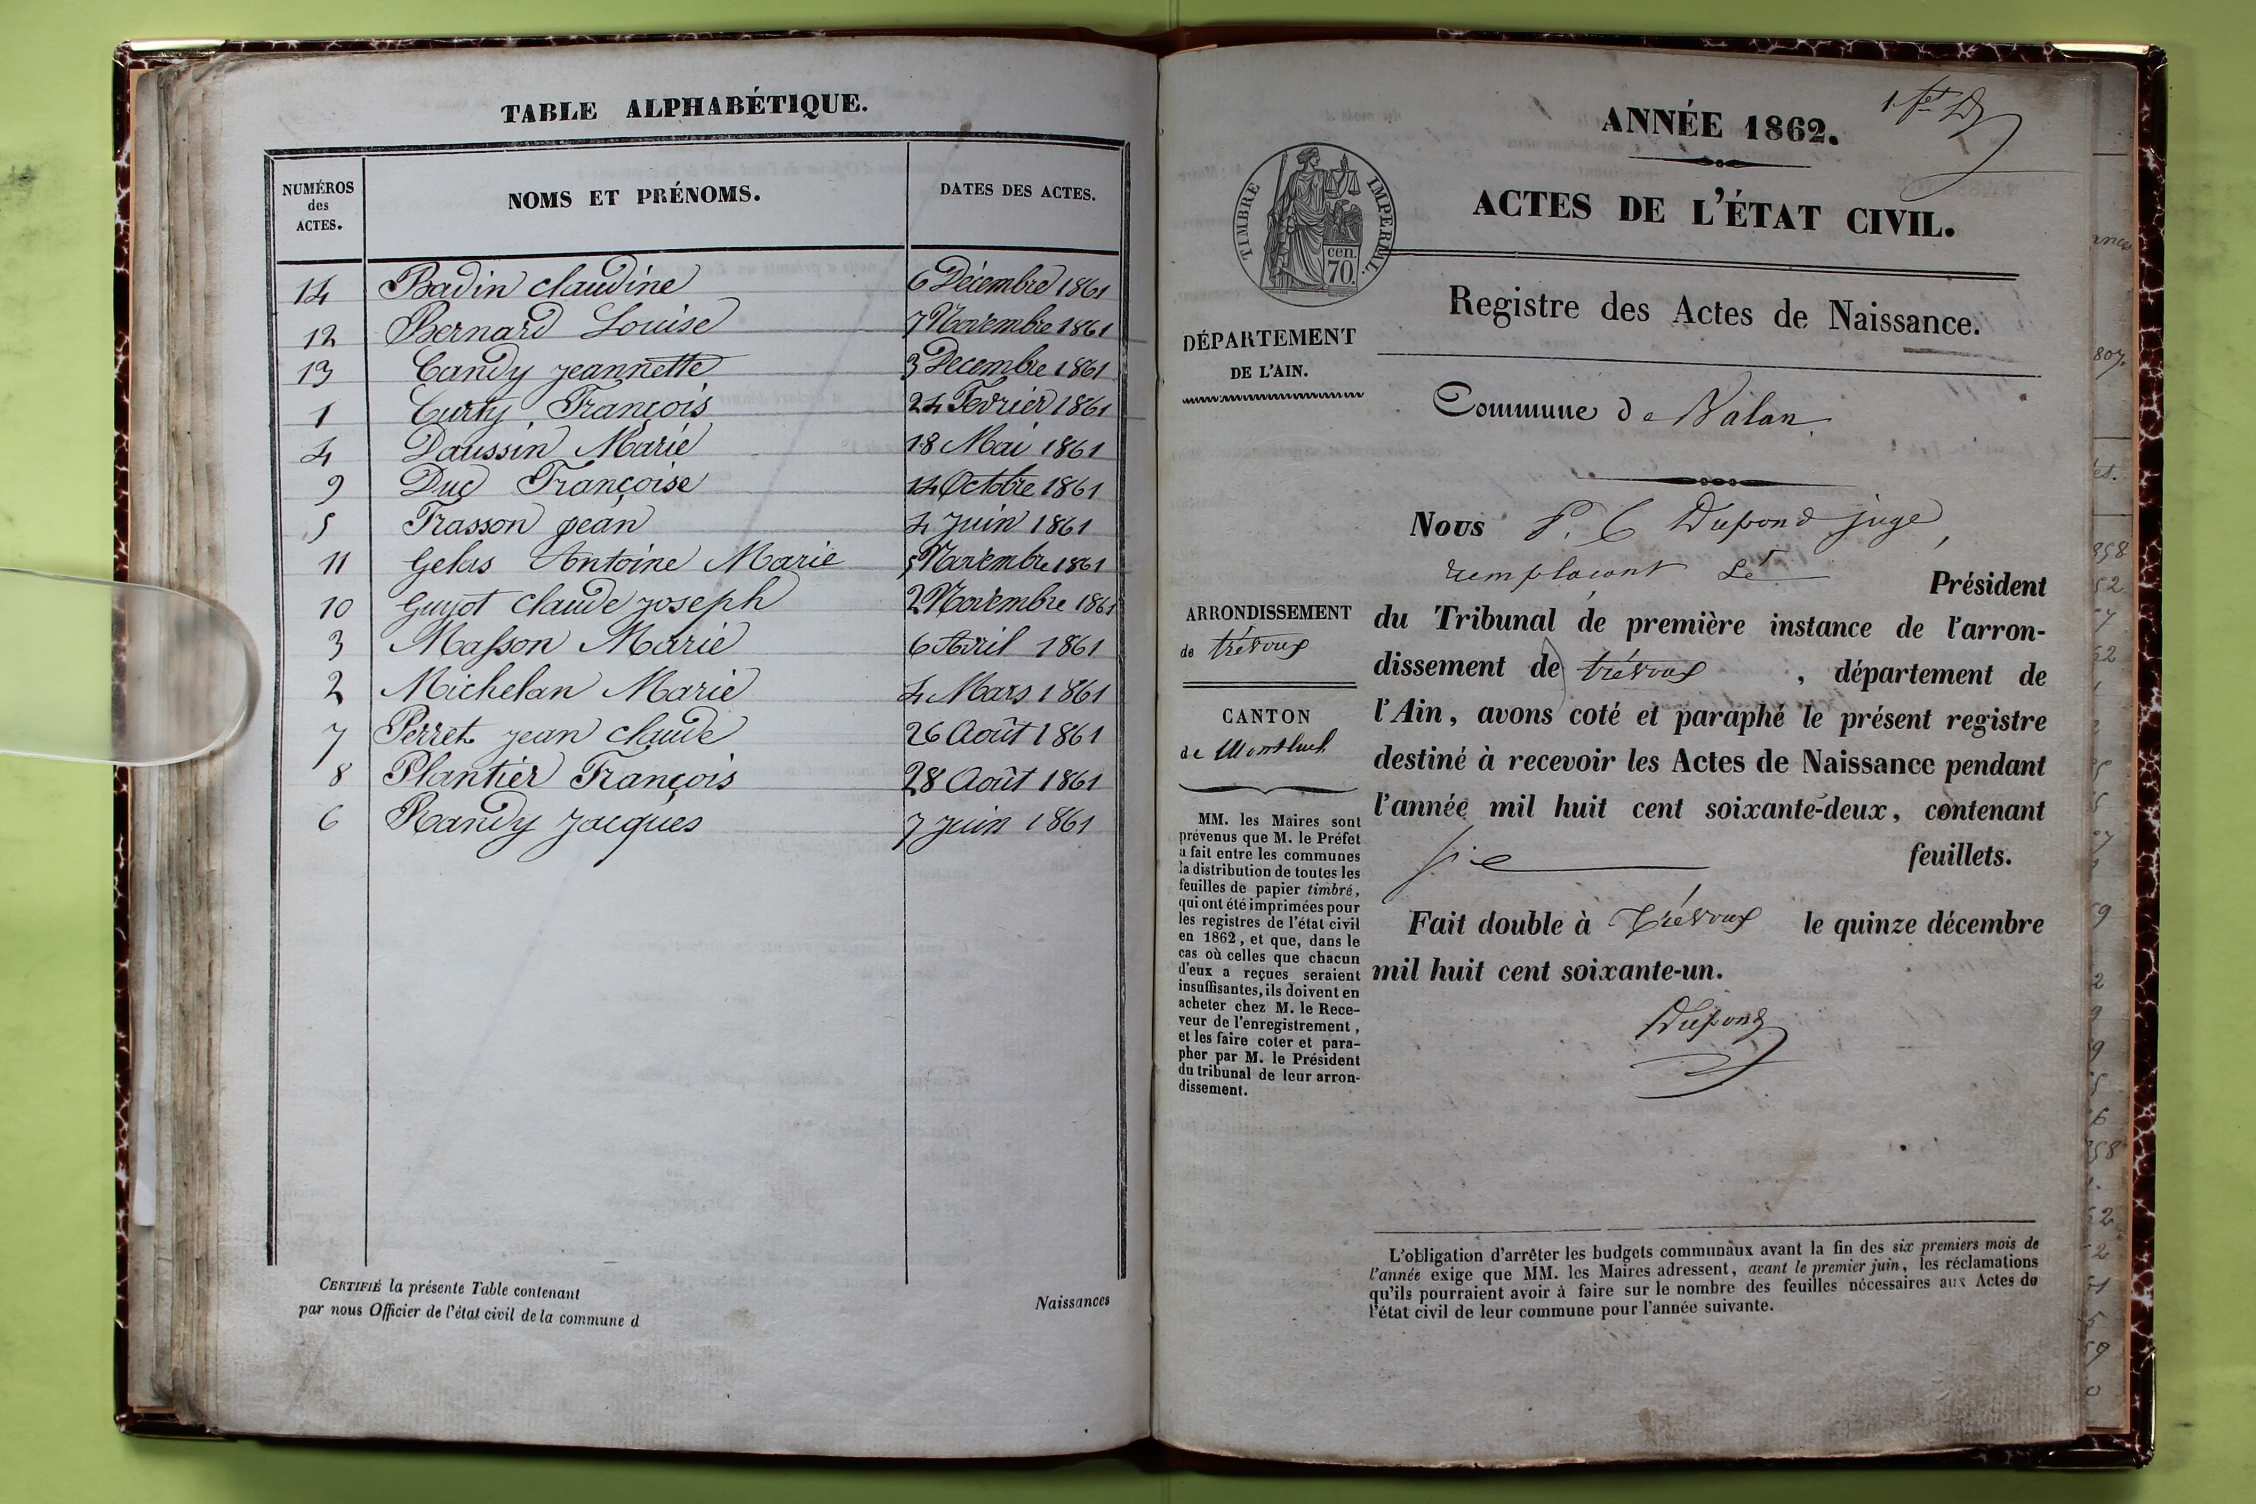 TABLE ALPHABÉTIQUE.
NUMÉROS des ACTES.
NOMS ET PRÉNOMS.
DATES DES ACTES.
14 Badin Claudine 6 Décembre 1861
12 Bernard Louise 7 Novembre 1861
13 Candy Jeannette 3 Decembre 1861
1 Curty François 24 Fevrier 1861
4 Daussin Marie 18 Mai 1861
9 Duc Françoise 14 Octobre 1861
5 Frasson jean 4 Juin 1861
11 Gelas Antoine Marie 5 Novembre 1861
10 Guyot Claude Joseph 2 Novembre 1861
3 Masson Marie 6 Avril 1861
2 Michelan Marie 4 Mars 1861
7 Perret Jean Claude 26 Août 1861
8 Plantier François 28 Août 1861
6 Randy Jacques 7 Juin 1861
CERTIFIÉ la présente Table contenant
Naissances
par nous Officier de l'état civil de la commune d
ANNÉE 1862.
ACTES DE L'ÉTAT CIVIL.
TIMBRE IMPERIAL.
cen.
70.
Registre des Actes de Naissance.
DÉPARTEMENT
DE L'AIN.
Commune de Balan.
Nous P. C Dupond juge,
remplaçant Le Président
du Tribunal de première instance de l'arron-
dissement de trévoux, département de
l'Ain, avons coté et paraphé le présent registre
destiné à recevoir les Actes de Naissance pendant
l'année mil huit cent soixante-deux, contenant
feuillets.
Fait double à Trévoux le quinze décembre
mil huit cent soixante-un.
Dupond
ARRONDISSEMENT
de trévoux
CANTON
de Montluel
MM. les Maires sont
prévenus que M. le Préfet
a fait entre les communes
la distribution de toutes les
feuilles de papier timbré,
qui ont été imprimées pour
les registres de l'état civil
en 1862, et que, dans le
cas où celles que chacun
d'eux a reçues seraient
insuffisantes, ils doivent en
acheter chez M. le Rece-
veur de l'enregistrement,
et les faire coter et para-
pher par M. le Président
du tribunal de leur arron-
dissement.
L'obligation d'arrêter les budgets communaux avant la fin des six premiers mois de
l'année exige que MM. les Maires adressent, avant le premier juin, les réclamations
qu'ils pourraient avoir à faire sur le nombre des feuilles nécessaires aux Actes de
l'état civil de leur commune pour l'année suivante.